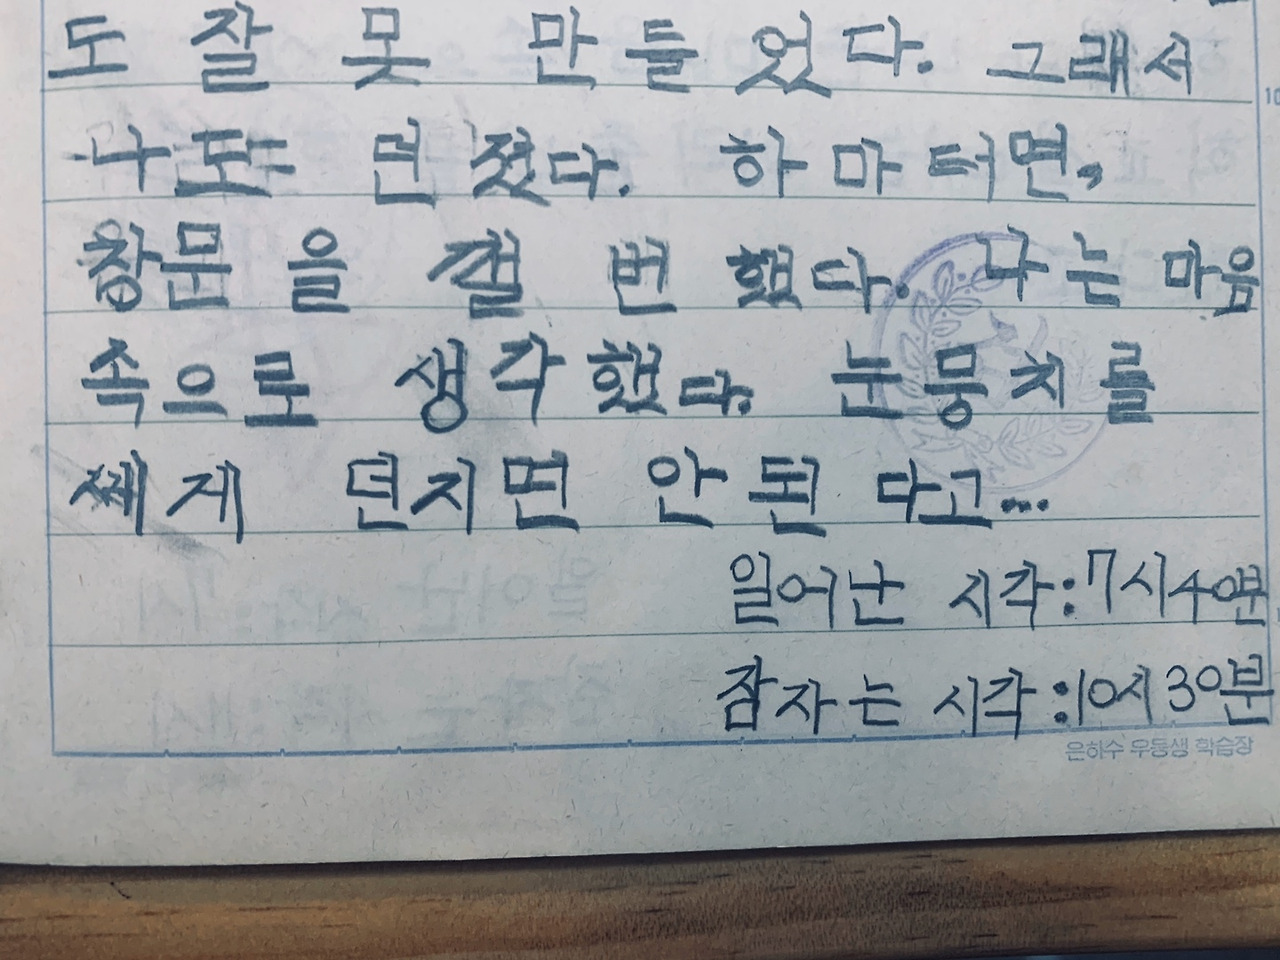 도 잘 못 만들었다. 그래서
나도 던졌다. 하마터면,
창문을 깰 번 했다. 나는 마음
속으로 생각했다. 눈뭉치를
쎄게 던지면 안된다고...
일어난 시각:7시4분
잠자는 시각:10시30분
은하수 우등생 학습장